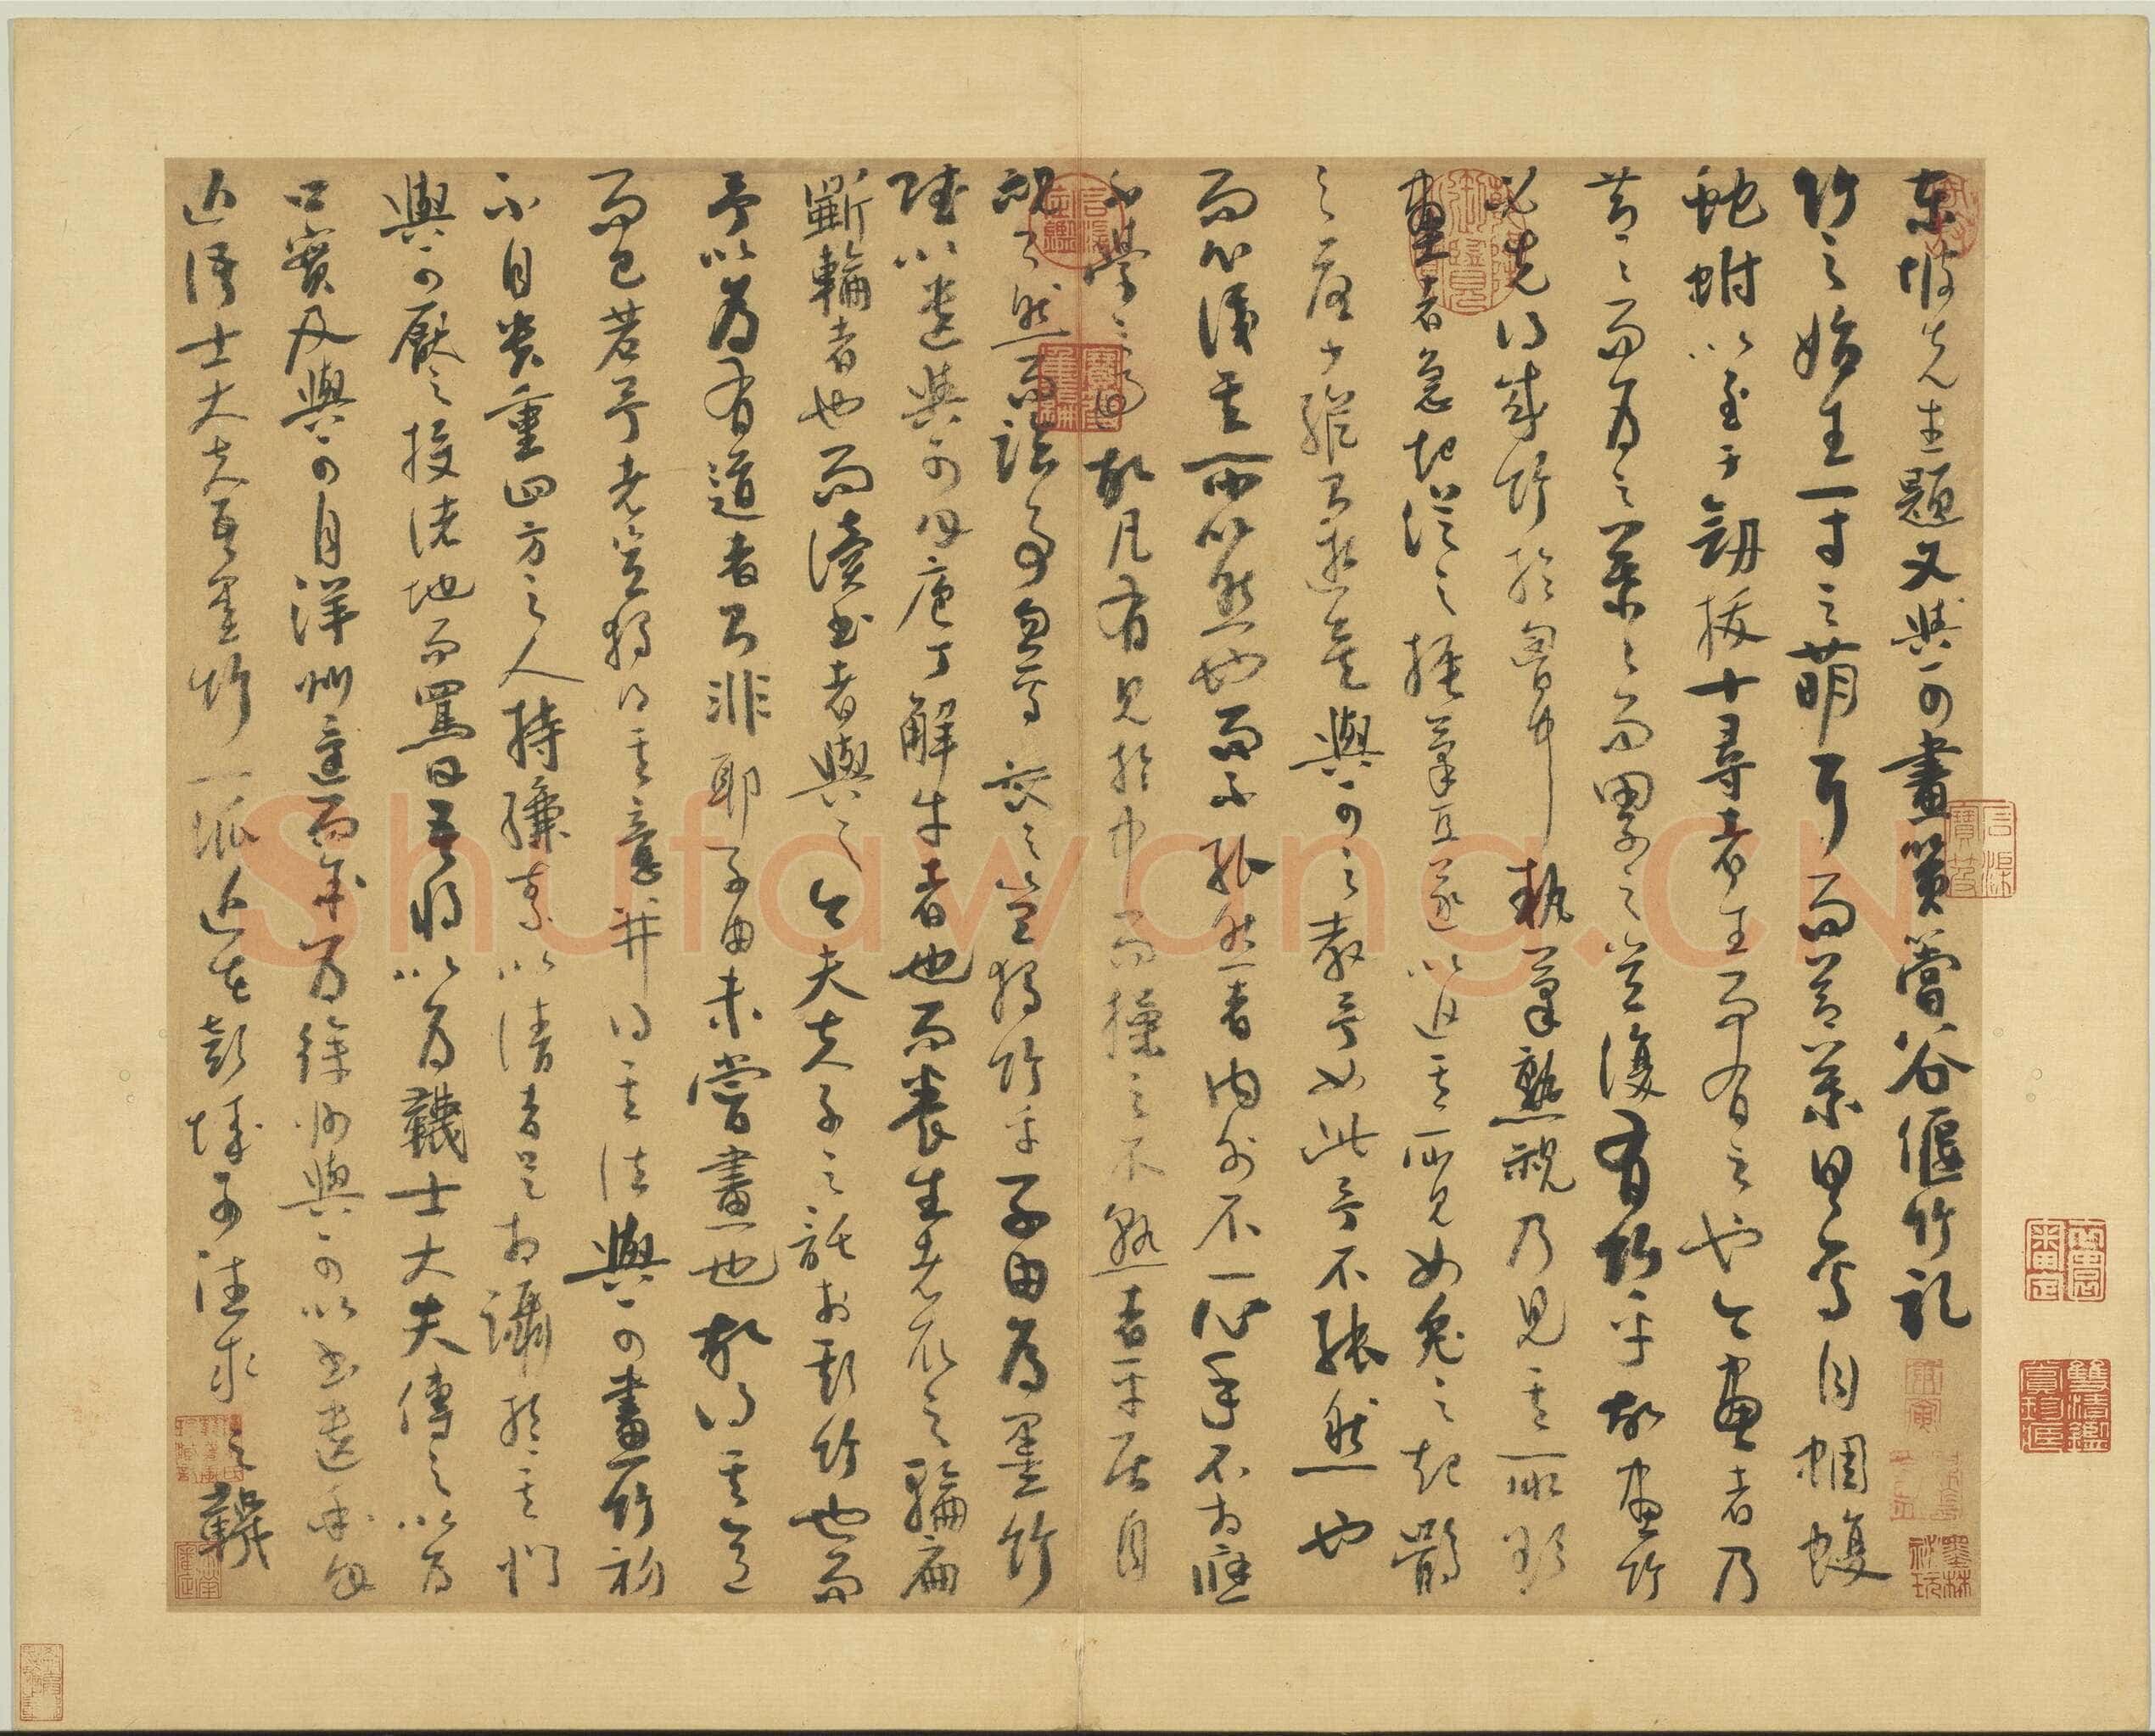 東坡先生題文與可畫篔簹谷偃竹記
竹之始生一寸之萌耳而節葉具焉自蜩蝮
蛇蚹以至于劒拔十尋者生而有之也今畫者乃
節節而為之葉葉而累之豈復有竹乎故畫竹
必先得成竹於胸中執筆熟視乃見其所欲
畫者急起從之振筆直遂以追其所見如兔之起鶻
之落少縱則逝矣與可之教予如此予不能然也
而心識其所以然也而不能然者內外不一心手不相應
不學之過也故凡有見於中而操之不熟者平居自
視了然而臨事忽焉喪之豈獨竹乎子由為墨竹
賦以遺與可曰庖丁解牛者也而養生者取之輪扁
斲輪者也而讀書者與之今夫夫子之託於斯竹也而
予以為有道者則非耶子由未嘗畫也故得其意
而已若予者豈獨得其意并得其法與可畫竹初
不自貴重四方之人持縑素以請者足相躡於其門
與可厭之投諸地而罵曰吾將以為韈士大夫傳之以為
口實及與可自洋州還而余為徐州與可以書遺余曰
近語士大夫吾墨竹一派近在彭城可往求之韈
Shufawang.CN